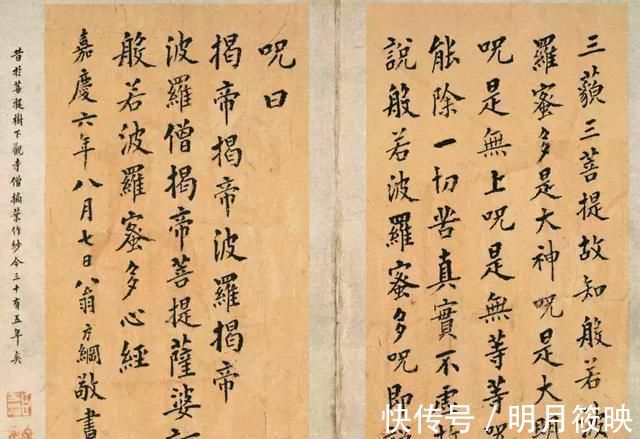 三藐三菩提故知般若波
羅蜜多是大神呪是大明
呪是無上呪是無等等呪
能除一切苦真實不虛故
說般若波羅蜜多呪即說
呪曰
揭帝揭帝波羅揭帝
波羅僧揭帝菩提薩婆訶
般若波羅蜜多心經
嘉慶六年八月七日翁方綱敬書
昔於菩提樹下觀寺僧摘葉作紗今三十有五年矣
快传号 / 明月筱映